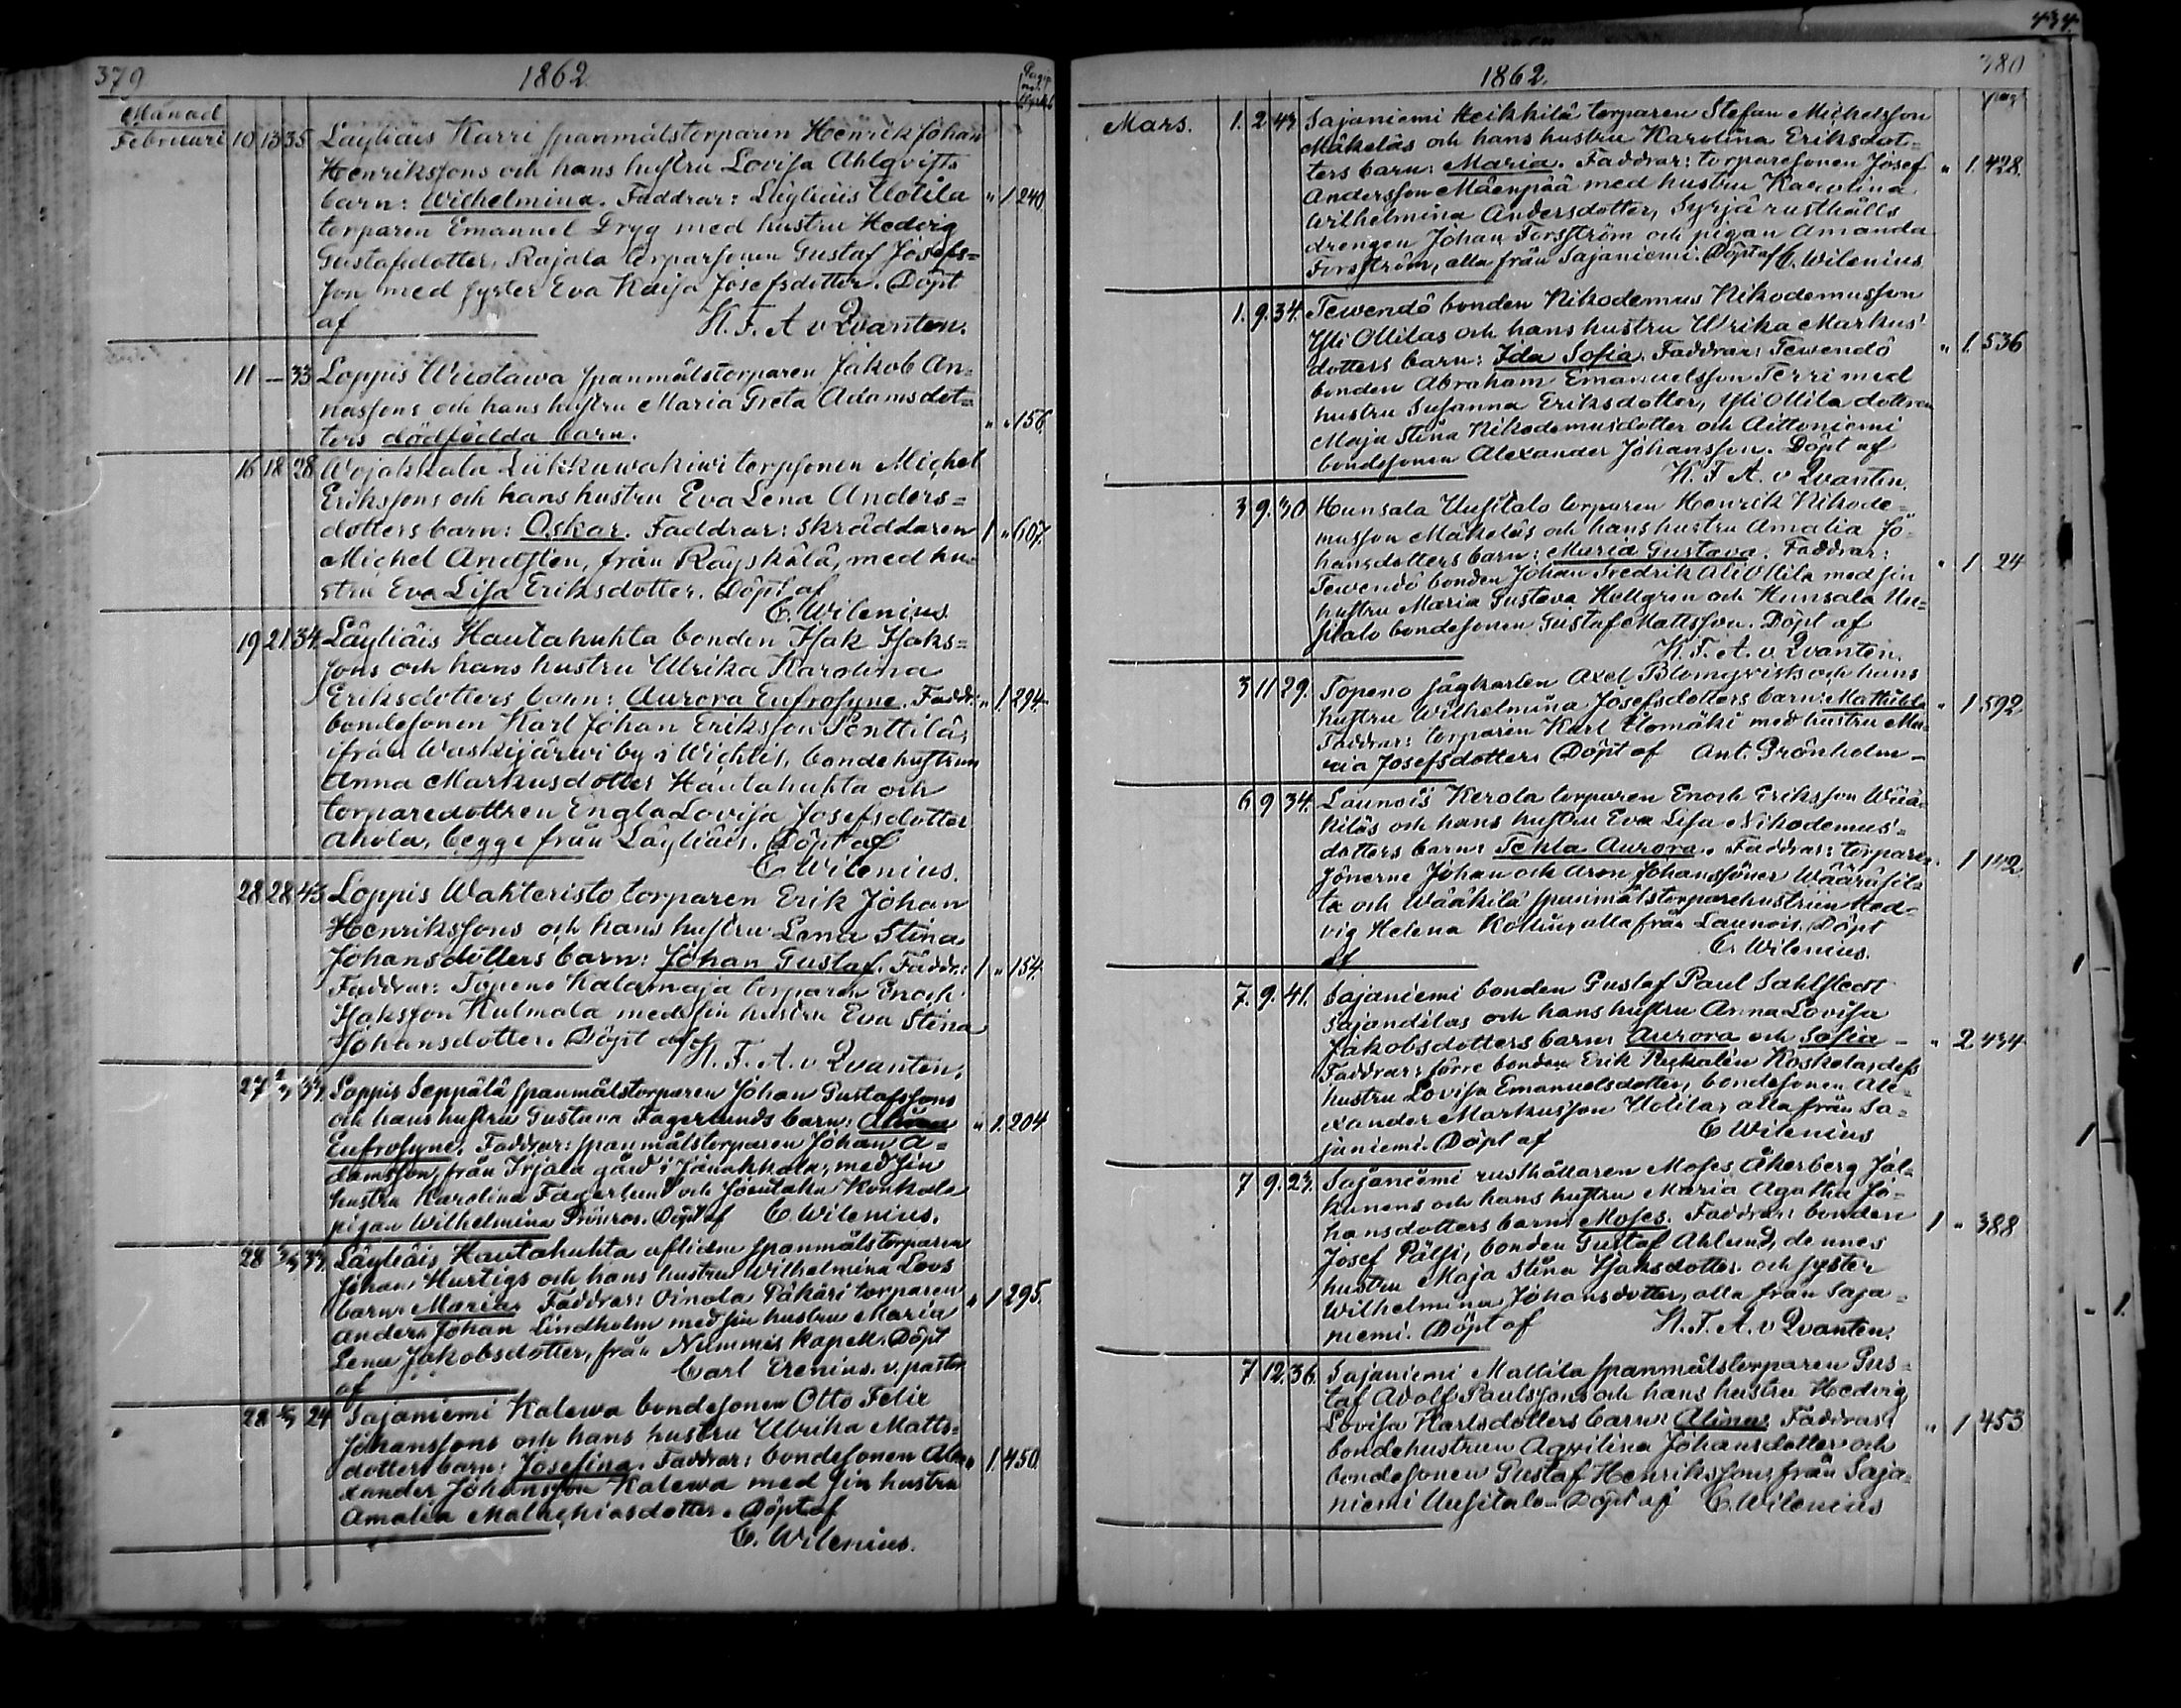 434.
379
1862.
Månad
Februari 10 13 35 Läyliäis Karri spanmålstorparen Henrik Johan
Henrikssons och hans hustru Lovisa Ahlqvists
barn: Wilhelmina. Faddrar: Läyliäis Uotila " 1 240.
torparen Emanuel Dryg med hustru Hedvig
Gustafsdotter, Rajala torparsonen Gustaf Josefs=
son med syster Eva Kaisa Josefsdotter. Döpt
af K. F. A. v Qvanten.
11 — 33 Loppis spanmålstorparen Jakob An=
nassons och hans hustru Maria Greta Adamsdot=
ters dödfödda barn. " " 156.
16 18 38 Wojakkala torpsonen Michel
Erikssons och hans hustru Eva Lena Anders=
dotters barn: Oskar. Faddrar: skräddaren 1 " 607.
Michel från Räyskälä, med hu=
stru Eva Lisa Eriksdotter. Döpt af
C. Wilenius.
19 21 34 Läyliäis Hautahuhta bonden Isak Isaks=
sons och hans hustru Ulrika Karolina
Eriksdotters barn: Aurora Eufrosyne. Faddr: " 1 294.
bondesonen Karl Johan Eriksson Penttilä,
ifrån Waskijärwi by i Wichtis, bondehustrun
Anna Markusdotter Hautahuhta och
torparedottren Engla Lovisa Josefsdotter
Ahola, begge från Läyliäis. Döpt af
C. Wilenius.
28 28 43 Loppis Wahteristo torparen Erik Johan
Henrikssons och hans hustru Lena Stina
Johansdotters barn: Johan Gustaf. Faddr: 1 " 154.
Faddrar: Topeno Kalamaja torparen Enoch
Isaksson Kulmala med sin hustru Eva Stina
Johansdotter. Döpt af K. F. A. v Qvanten.
27 2/3 33 Loppis Seppälä spanmålstorparen Johan Gustafssons
och hans hustru Gustava Fagerlunds barn: " 1. 204
Eufrosyne. Faddrar: spanmålstorparen Johan A=
damsson, från Irjala gård i Janakkala, med sin
hustru Karolina Fagerlund och
pigan Wilhelmina Döpt af C. Wilenius.
28 33 Läyliäis Hautahuhta aflidne spanmålstorparen
Johan Hurtigs och hans hustru Wilhelmina
barn: Maria. Faddrar: Oinola Päkäri torparen " 1 295.
Anders Johan Lindholm med sin hustru Maria
Lena Jakobsdotter, från Nummis kapell. Döpt
af Carl Erenius. v. pastor
28 24 Sajaniemi Kalewa bondesonen Otto Felix
Johanssons och hans hustru Ulrika Matts=
dotters barn: Josefina. Faddrar: bondesonen Ale= " 1. 450
xander Johansson Kalewa med sin hustru
Amalia Malachiasdotter. Döpt af
C. Wilenius.
380
1862.
pag:
Mars. 1. 2 43 Sajaniemi Heikkilä torparen Stefan Michelsson
Mäkeläs och hans hustru Karolina Eriksdot=
ters barn: Maria. Faddrar: torparesonen Josef " 1. 428.
Andersson Mäenpää med hustru Karolina
Wilhelmina Andersdotter, Syrjä rusthålls
drengen Johan Forsström och pigan Amanda
Forsström, alla från Sajaniemi. Döpt af C. Wilenius
1. 9. 34. Tewendö bonden Nikodemus Nikodemusson
Yli Ollilas och hans hustru Ulrika Markus=
dotters barn: Ida Sofia. Faddrar: Tewendö " 1. 536
bonden Abraham Emanuelsson Terri med
hustru Susanna Eriksdotter, Yli Ollila dottren
Maja Stina Nikodemusdotter och Aittoniemi
bondesonen Alexander Johansson. Döpt af
K. F. A. v. Qvanten.
3 9. 30 Hunsala Uusitalo torparen Henrik Nikode=
musson Mäkeläs och hans hustru Amalia Jo=
hansdotters barn: Maria Gustava. Faddrar: " 1 24
Tewendö bonden Johan Fredrik Ali Ollila med sin
hustru Maria Gustava Hellgren och Hunsala Uu=
sitalo bondesonen Gustaf Mattsson. Döpt af
K. F. A. v. Qvanten.
3 11 29. Topeno sågkarlen Axel Blomqvists och hans
hustru Wilhelmina Josefsdotters barn: Mathilda " 1 592
Faddrar: torparen Karl Elomäki med hustru Ma=
ria Josefsdotter. Döpt af Ant. Grönholm —
6 9 34. Launois Kerola torparen Enoch Eriksson Wää=
kiläs och hans hustru Eva Lisa Nikodemus=
dotters barn: Tekla Aurora. Faddrar: torpare 1 142
sönerne Johan och Aron Johanssöner
ta och Wääkilä spanmålstorparehustrun Hed=
vig Helena Kollin, alla från Launois. Döpt
af C. Wilenius.
7. 9. 41. Sajaniemi bonden Gustaf Paul Sahlstedt
Sajandilas och hans hustru Anna Lovisa
Jakobsdotters barn: Aurora och Sofia — " 2 434
Faddrar: förre bonden Erik Koskela, dess
hustru Lovisa Emanuelsdotter, bondesonen Ale=
xander Markusson Uotila, alla från Sa=
janiemi. Döpt af C Wilenius
7 9. 23. Sajaniemi rusthållaren Moses Åkerberg Jal=
kanens och hans hustru Maria Agatha Jo=
hansdotters barn: Moses. Faddrar: bonden 1 " 388
Josef Pälsi, bonden Gustaf Ahlund, dennes
hustru Maja Stina Isaksdotter och syster
Wilhelmina Johansdotter, alla från Saja=
niemi. Döpt af K. F. A. v Qvanten.
7 12. 36. Sajaniemi Mattila spanmålstorparen Gus=
taf Adolf Paulssons och hans hustru Hedvig
Lovisa Karlsdotters barn: Alina. Faddrar: " 1 453
bondehustrun Aqvilina Johansdotter och
bondesonen Gustaf Henriksson, från Saja=
niemi Uusitalo. Döpt af C. Wilenius